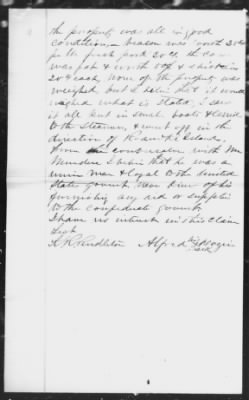 the property was all in good
condition - bacon was worth 20c
pr lb fresh pork 20c the cow
was fat & worth $ & shoats in
20 $ each, none of the property was
weighed but I believe that it would
weighed what is stated, I saw
it all put in small boats & carried
to the Steamer, & went off in the
direction of Islands
From conversation with Mr
I believe that he was a
union man & loyal to the United
States Governmt. Never knew of his
furnishing any aid or supplies
to the Confederate Governmt
I have no interest in this claim
Test
Pendleton Alfred his
mark